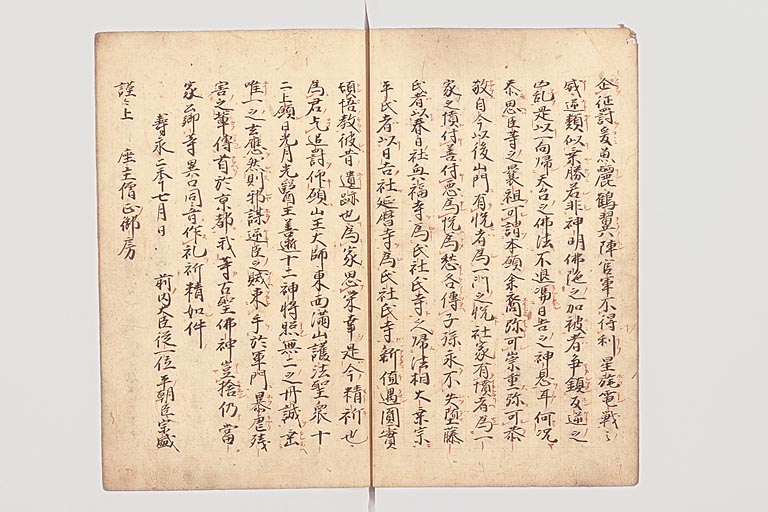 企征罸爰魚麗鶴翼陣官軍不得利星旄電戟
威逆類似乗勝若非神明佛陀之加被者争鎮反逆之
乱是以一向帰天台之佛法不退馮日吉之神恩耳何况
忝思臣等之曩祖可謂本願余裔弥可崇重弥可恭
敬自今以後山門有悦者為一門之悦社家有憤者為一
家之憤付善付悪為悦為愁各傳子孫永不失墮藤
氏者以春日社興福寺為氏社氏寺久帰法相大乗宗
平氏者以日吉社延暦寺為氏社氏寺新値遇圓實
頓悟教彼昔遺跡也為家思栄幸是今精祈也
為君乞追罸仰願山王大師東西満山護法聖衆十
二上願日光月光醫王善逝十二神将照無二之丹誠垂
唯一之玄應然則邪謀逆臣之賊束手於軍門暴虐残
害之輩傳首於京都我等苦聖佛神豈捨仍當
家公卿等異口同音作礼祈精如件
壽永二年七月日 前内大臣従一位平朝臣宗盛
謹々上 座主僧正御房